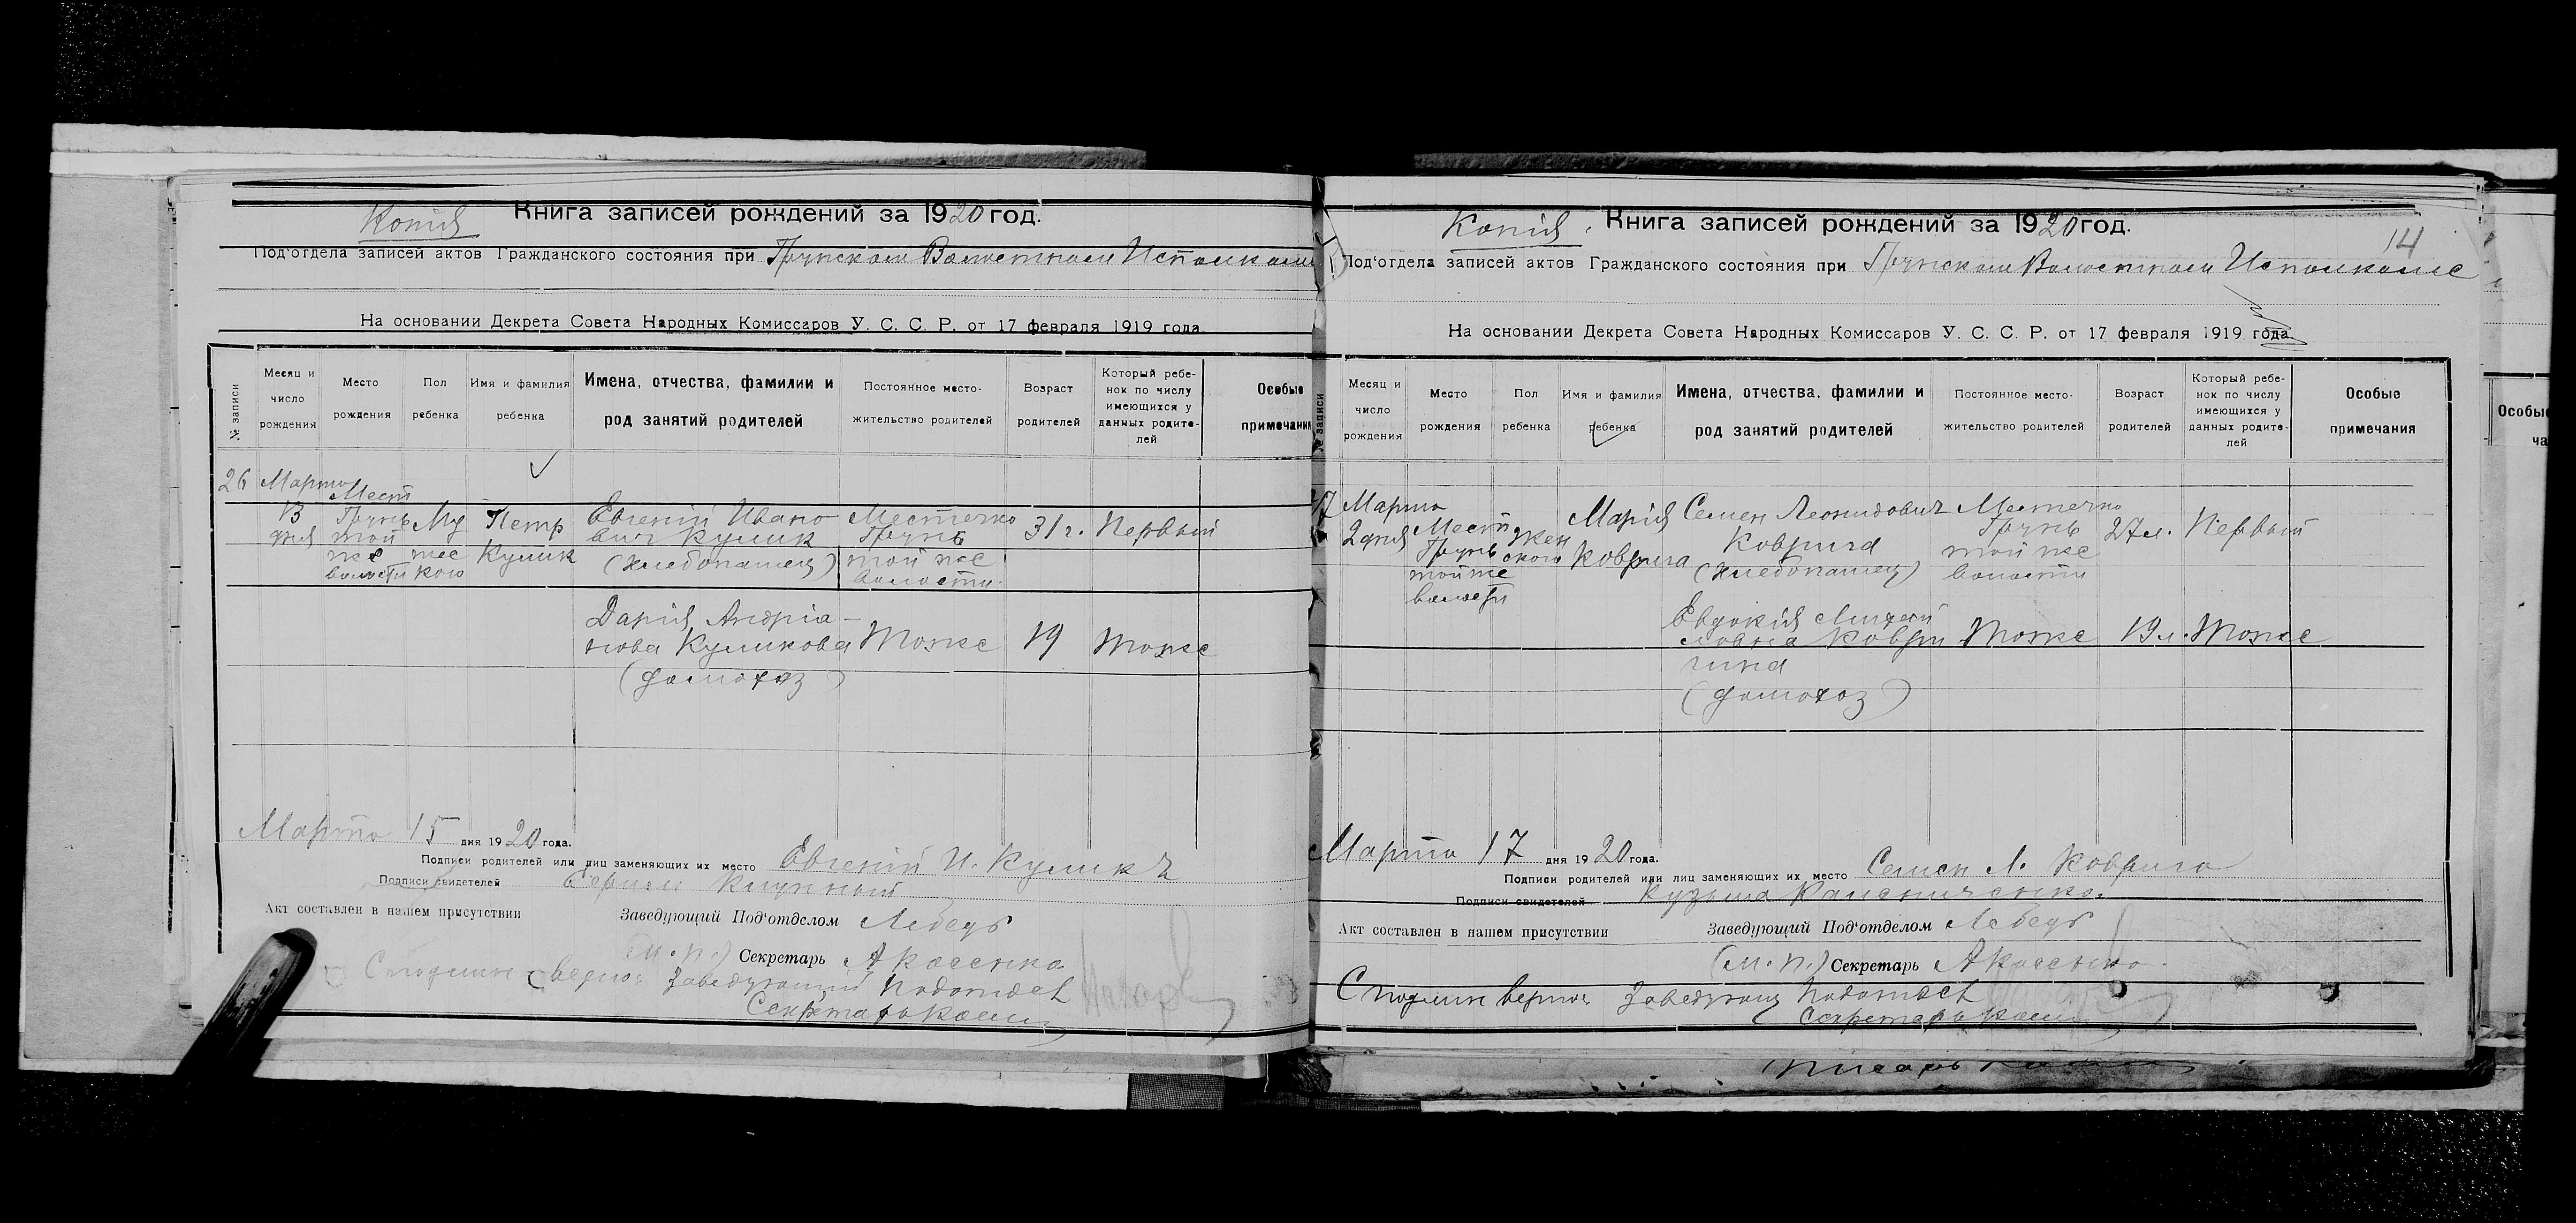 Копія
Книга записей рождений за 1920 год.
Под'отдела записей актов Гражданского состояния при Грунском Волостном Исполкоме
На основании Декрета Совета Народных Комиссаров У. С. С. Р. от 17 февраля 1919 года.
№ записи
Месяц и число рождения
Место рождения
Пол ребенка
Имя и фамилия ребенка
Имена, отчества, фамилии и род занятий родителей
Постоянное место-жительство родителей
Возраст родителей
Который ребе-нок по числу имеющихся у данных родите-лей
Особые примечания
26
Марта
13
дня
Мест
Грунь
той
же
волости
Му
жес
кого
Петр
Кулик
Евгеній Ивано
вич Кулик
(хлебопашец)
Местечко
Грунь
той же
волости.
31 г.
Первый
Дарія Андріа-
нова Куликова
(домохоз)
Тоже
19
Тоже
Марта 15 дня 1920 года.
Подписи родителей или лиц заменяющих их место Евгеній И. Кулик
Подписи свидетелей
Акт составлен в нашем присутствии
Заведующий Под'отделом Лебедь
(М.П.) Секретарь А Касенко
С подлин верно: Заведующий Подотдел
Секретарь
Копія
Книга записей рождений за 1920 год.
14
Под'отдела записей актов Гражданского состояния при Грунском Волостном Исполкоме
На основании Декрета Совета Народных Комиссаров У. С. С. Р. от 17 февраля 1919 года.
№ записи
Месяц и число рождения
Место рождения
Пол ребенка
Имя и фамилия ребенка
Имена, отчества, фамилии и род занятий родителей
Постоянное место-жительство родителей
Возраст родителей
Который ребе-нок по числу имеющихся у данных родите-лей
Особые примечания
Марта
2 дня
Мест
Грунь
той же
волости
жен
ского
Марія
Коврига
Семен Леонидович
Коврига
(хлебопашец)
Местечко
Грунь
той же
волости
27 л.
Первый
Евдокія
Коври
гина
(домохоз)
Тоже
19 л.
Тоже
Марта 17 дня 1920 года.
Подписи родителей или лиц заменяющих их место Семен Л. Коврига
Подписи свидетелей Кузьма
Акт составлен в нашем присутствии
Заведующий Под'отделом Лебедь
(М.П.) Секретарь А Касенко
С подлин верно: Заведующ Подотдел
Секретарь